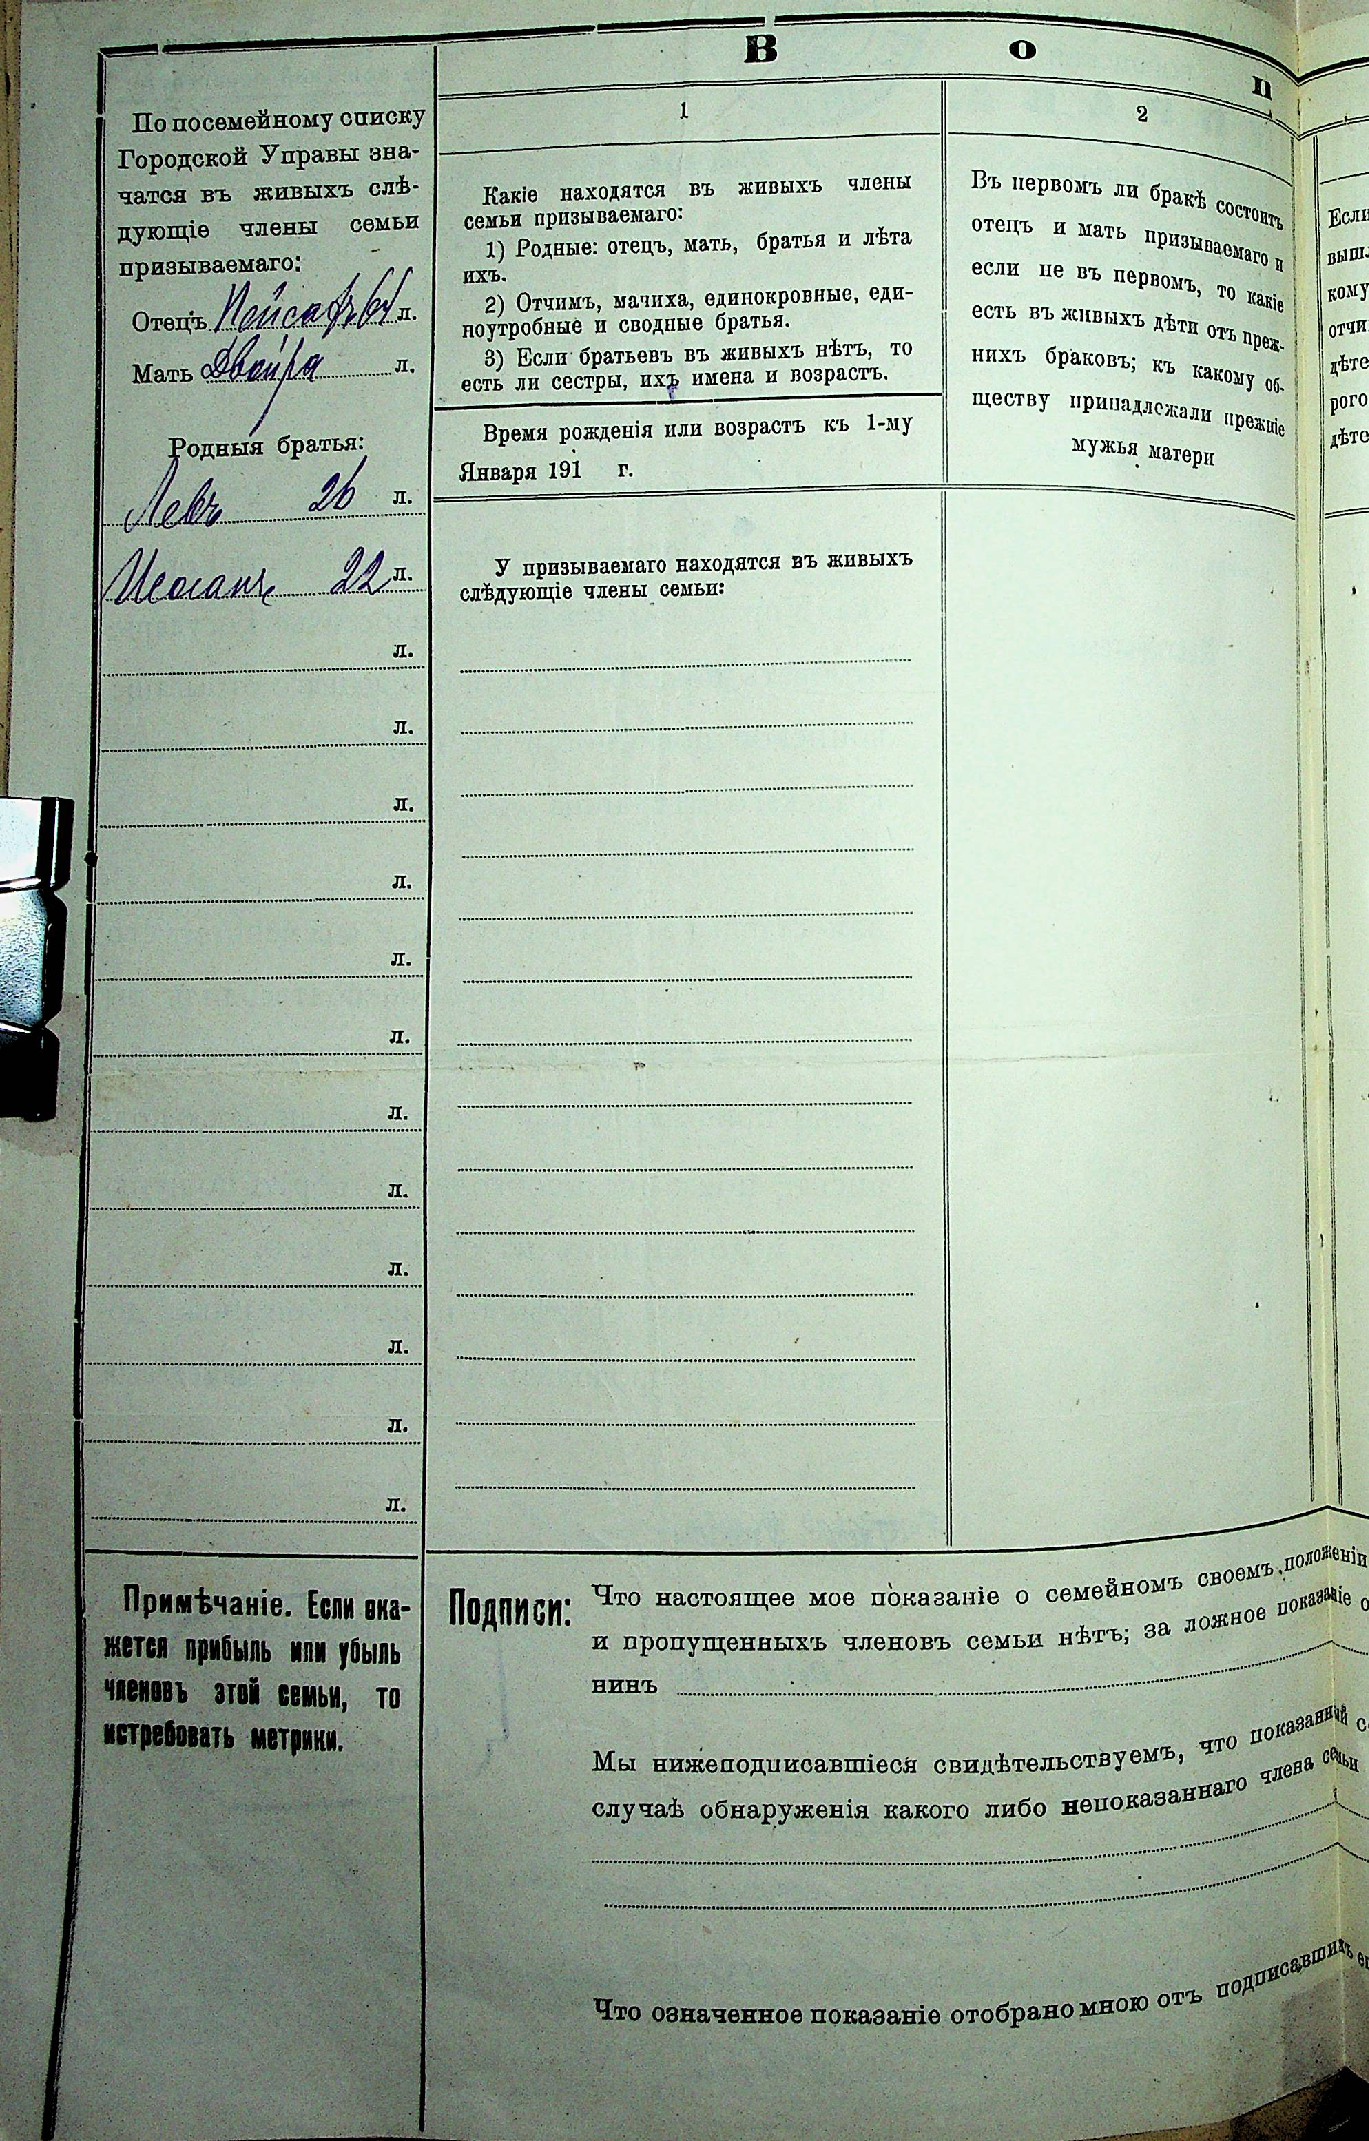 В о п
По посемейному списку
Городской Управы зна-
чатся въ живыхъ слѣ-
дующіе члены семьи
призываемаго:
Отецъ Пейсахъ 64 л.
Мать Двойра л.
Родныя братья:
Левъ 26 л.
22 л.
л.
л.
л.
л.
л.
л.
л.
л.
л.
л.
л.
л.
Примѣчаніе. Если ока-
жется прибыль или убыль
членовъ этой семьи, то
истребовать метрики.
1
Какіе находятся въ живыхъ члены
семьи призываемаго:
1) Родные: отецъ, мать, братья и лѣта
ихъ.
2) Отчимъ, мачиха, единокровные, еди-
ноутробные и сводные братья.
3) Если братьевъ въ живыхъ нѣтъ, то
есть ли сестры, ихъ имена и возрастъ.
Время рожденія или возрастъ къ 1-му
Января 191 г.
У призываемаго находятся въ живыхъ
слѣдующіе члены семьи:
2
Въ первомъ ли бракѣ состоитъ
отецъ и мать призываемаго и
если не въ первомъ, то какіе
есть въ живыхъ дѣти отъ преж-
нихъ браковъ; къ какому об-
ществу принадлежали прежніе
мужья матери
Если
выш.
кому
отчи
дѣте
рого
дѣте
Подписи:
Что настоящее мое показаніе о семейномъ своемъ положеніи
и пропущенныхъ членовъ семьи нѣтъ; за ложное показаніе о
нинъ
Мы нижеподписавшіеся свидѣтельствуемъ, что показанный с
случаѣ обнаруженія какого либо непоказаннаго члена семьи
Что означенное показаніе отобрано мною отъ подписавшихъ ег